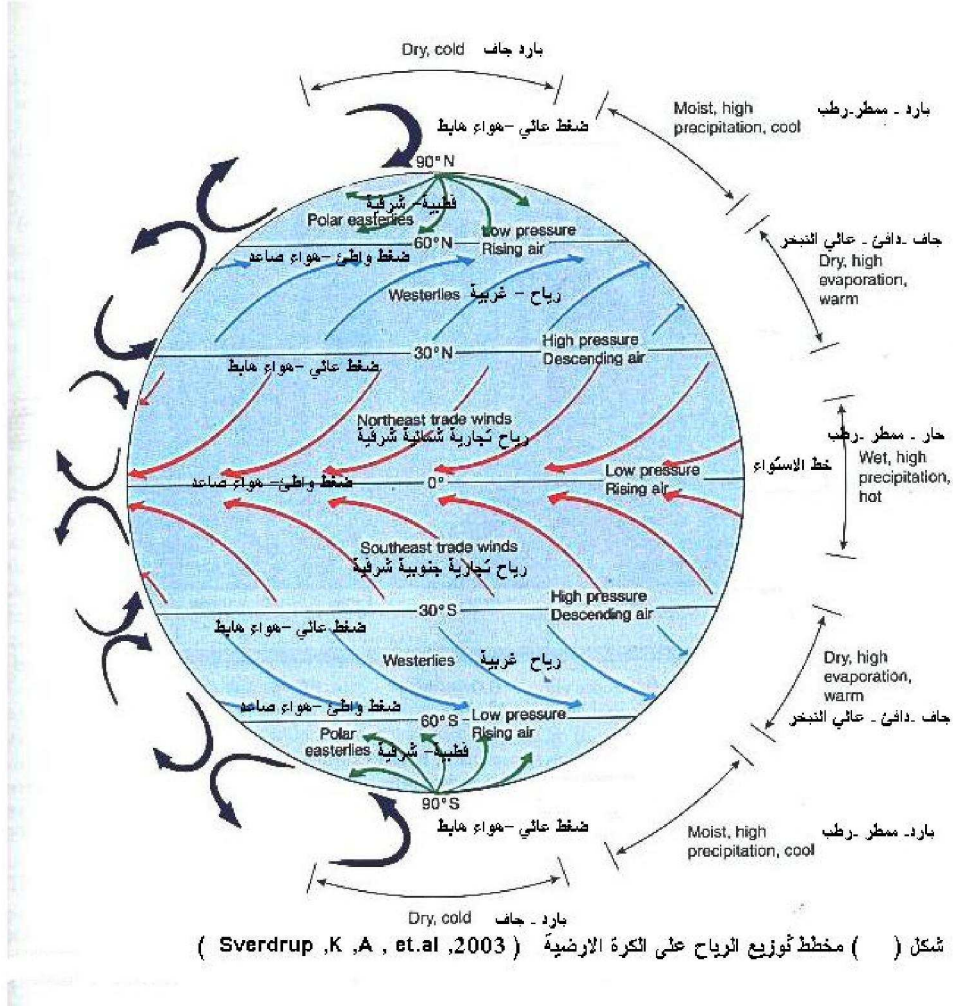 Dry, cold بارد جاف
Moist, high
precipitation, cool
بارد ـ ممطر ـ رطب
ضغط عالي -هواء هابط
90°N
قطبية- شرقية
Polar easterlies
Low pressure
Rising air
60°N
ضغط واطئ -هواء صاعد
جاف ـ دافئ ـ عالي التبخر
Dry, high
evaporation,
warm
Westerlies رياح - غربية
High pressure
Descending air
30°N
ضغط عالي -هواء هابط
Northeast trade winds
رياح تجارية شمالية شرقية
حار ـ ممطر ـ رطب
Wet, high
precipitation,
hot
خط الاستواء
Low pressure
Rising air
0°
ضغط واطئ- هواء صاعد
Southeast trade winds
رياح تجارية جنوبية شرقية
High pressure
Descending air
30°S
ضغط عالي -هواء هابط
Westerlies رياح غربية
Dry, high
evaporation,
warm
جاف ـ دافئ ـ عالي التبخر
ضغط واطئ -هواء صاعد
60°S
Low pressure
Rising air
Polar
easterlies
قطبية- شرقية
90°S
ضغط عالي -هواء هابط
Moist, high
precipitation, cool
بارد ـ ممطر ـ رطب
Dry, cold بارد ـ جاف
شكل ( ) مخطط توزيع الرياح على الكرة الارضية ( Sverdrup ,K ,A , et.al ,2003 )